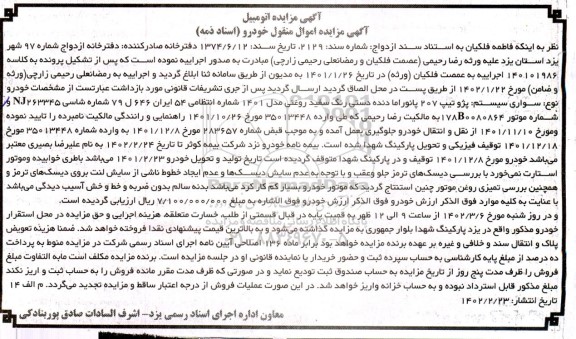 آگهی مزایده اتومبیل
آگهی مزایده اموال منقول خودرو (اسناد ذمه)
نظر به اینکه فاطمه فلکیان به استناد سند ازدواج: شماره سند: ۲۱۲۹، تاریخ سند: ۱۳۷۴/۶/۱۲ دفترخانه صادرکننده: دفترخانه ازدواج شماره ۹۷ شهر
یزد استان یزد علیه ورثه رضا رحیمی (عصمت فلکیان و رمضانعلی رحیمی زارچی) مبادرت به صدور اجراییه نموده است که پس از تشکیل پرونده به کلاسه
۱۴۰۱۰۱۹۸۶ اجراییه به عصمت فلکیان (ورثه) در تاریخ ۱۴۰۱/۱/۲۶ به مدیون از طریق سامانه ثنا ابلاغ گردید و اجراییه به رمضانعلی رحیمی زارچی (ورثه
و ضامن) مورخ ۱۴۰۲/۱/۲۲ از طریق پست در محل الصاق گردید ارسال گردید پس از جری تشریفات قانونی مورد بازداشت عبارتست از مشخصات خودرو
نوع: سواری سیستم: پژو تیپ ۲۰۷ پانوراما دنده رنگ سفید روغنی مدل ۱۴۰۱ شماره انتظامی ۵۴ ایران ۶۴۶ ل ۷۹ شماره شاسی NJ۲۶۳۳۴۵ و
شماره موتور ۱۷۸B۰۰۸۰۸۶۴ به مالکیت رضا رحیمی که طی وارده ۳۵۰۱۳۴۴۸ مورخ ۱۴۰۱/۱۰/۲۶ راهنمایی و رانندگی مالکیت نامبرده را تایید نموده
ومورخ ۱۴۰۱/۱۱/۱۰ از نقل و انتقال خودرو جلوگیری بعمل آمده و به موجب قبض شماره ۲۸۳۶۵۷ مورخ ۱۴۰۱/۱۲/۸ به وارده شماره ۳۵۰۱۳۴۴۸ مورخ
۱۴۰۱/۱۲/۱۸ توقیف فیزیکی و تحویل پارکینگ شهدا شده است. بیمه نامه خودرو نزد شرکت بیمه کوثر تا تاریخ ۱۴۰۲/۲/۲۴ به نام علیرضا بصیری معتبر
می‌باشد خودرو مورخ ۱۴۰۱/۱۲/۸ توقیف و در پارکینگ شهدا متوقف گردیده است تاریخ تولید و تحویل خودرو ۱۴۰۱/۲/۲۳ می‌باشد باطری خوابیده وموتور
استارت نمی‌خورد با بررسی دیسک‌های ترمز جلو وعقب و با توجه به عدم سایش دیسک‌ها و عدم ایجاد خطوط ناشی از سایش لنت بروی دیسک‌های ترمز و
همچنین بررسی تمیزی روغن موتور چنین استنتاج گردید که موتور خودرو بسیار کم کار کرد می‌باشد بدنه سالم بدون ضربه و خط و خش آسیب دیدگی می‌باشد
با عنایت به کلیه موارد فوق الذکر ارزش خودرو فوق الذکر ارزش خودرو فوق الاشاره به مبلغ ۷/۱۰۰/۰۰۰/۰۰۰ ریال ارزیابی گردیده است.
و در روز شنبه مورخ ۱۴۰۲/۳/۶ از ساعت ۹ الی ۱۲ ظهر به قیمت پایه در قبال قسمتی از طلب خسارت متعلقه هزینه اجرایی و حق مزایده در محل استقرار
خودرو مذکور واقع در یزد پارکینگ شهدا بلوار جمهوری به مزایده گذاشته می‌شود و به بالاترین قیمت پیشنهادی نقدا فروخته خواهد شد. ضمنا هزینه تعویض
پلاک و انتقال سند و خلافی و غیره بر عهده برنده مزایده خواهد بود برابر ماده ۱۳۶ اصلاحی آیین نامه اجرای اسناد رسمی شرکت در مزایده منوط به پرداخت
ده درصد از مبلغ پایه کارشناسی به حساب سپرده ثبت و حضور خریدار یا نماینده قانونی او در جلسه مزایده است. برنده مزایده مکلف است مابه التفاوت مبلغ
فروش را ظرف مدت پنج روز از تاریخ مزایده به حساب صندوق ثبت تودیع نماید و در صورتی که ظرف مدت مقرر مانده فروش را به حساب ثبت و اریز نکند
مبلغ مذکور قابل استرداد نبوده و به حساب خزانه واریز خواهد شد. در این صورت عملیات فروش از درجه اعتبار ساقط و مزایده تجدید می‌گردد. م الف ۱۴
تاریخ انتشار: ۱۴۰۲/۲/۲۳
معاون اداره اجرای اسناد رسمی یزد- اشرف السادات صادق پوربنادکی